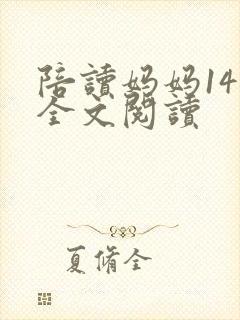 陪讀妈妈14
全文閱讀
夏脩全